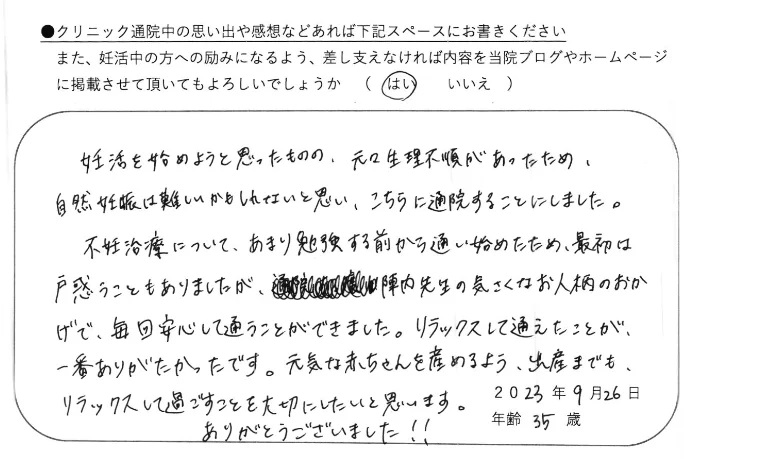 ●クリニック通院中の思い出や感想などあれば下記スペースにお書きください
また、妊活中の方への励みになるよう、差し支えなければ内容を当院ブログやホームページ
に掲載させて頂いてもよろしいでしょうか （ はい いいえ ）
妊活を始めようと思ったものの、元々生理不順があったため、
自然妊娠は難しいかもしれないと思い、こちらに通院することにしました。
不妊治療について、あまり勉強する前から通い始めたため、最初は
戸惑うこともありましたが、陣内先生の気さくなお人柄のおか
げで、毎回安心して通うことができました。リラックスして通えたことが、
一番ありがたかったです。元気な赤ちゃんを産めるよう、出産までも、
リラックスして過ごすことを大切にしたいと思います。
ありがとうございました！！
2023年9月26日
年齢 35 歳